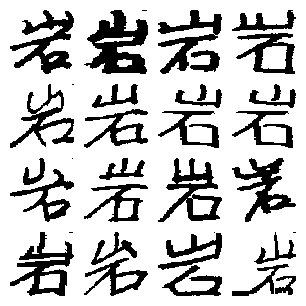 岩岩岩岩
岩岩岩岩
岩岩岩岩
岩岩岩岩